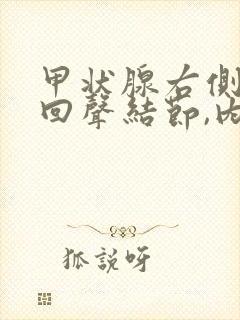 甲状腺右側
回聲結節,内
狐説呀